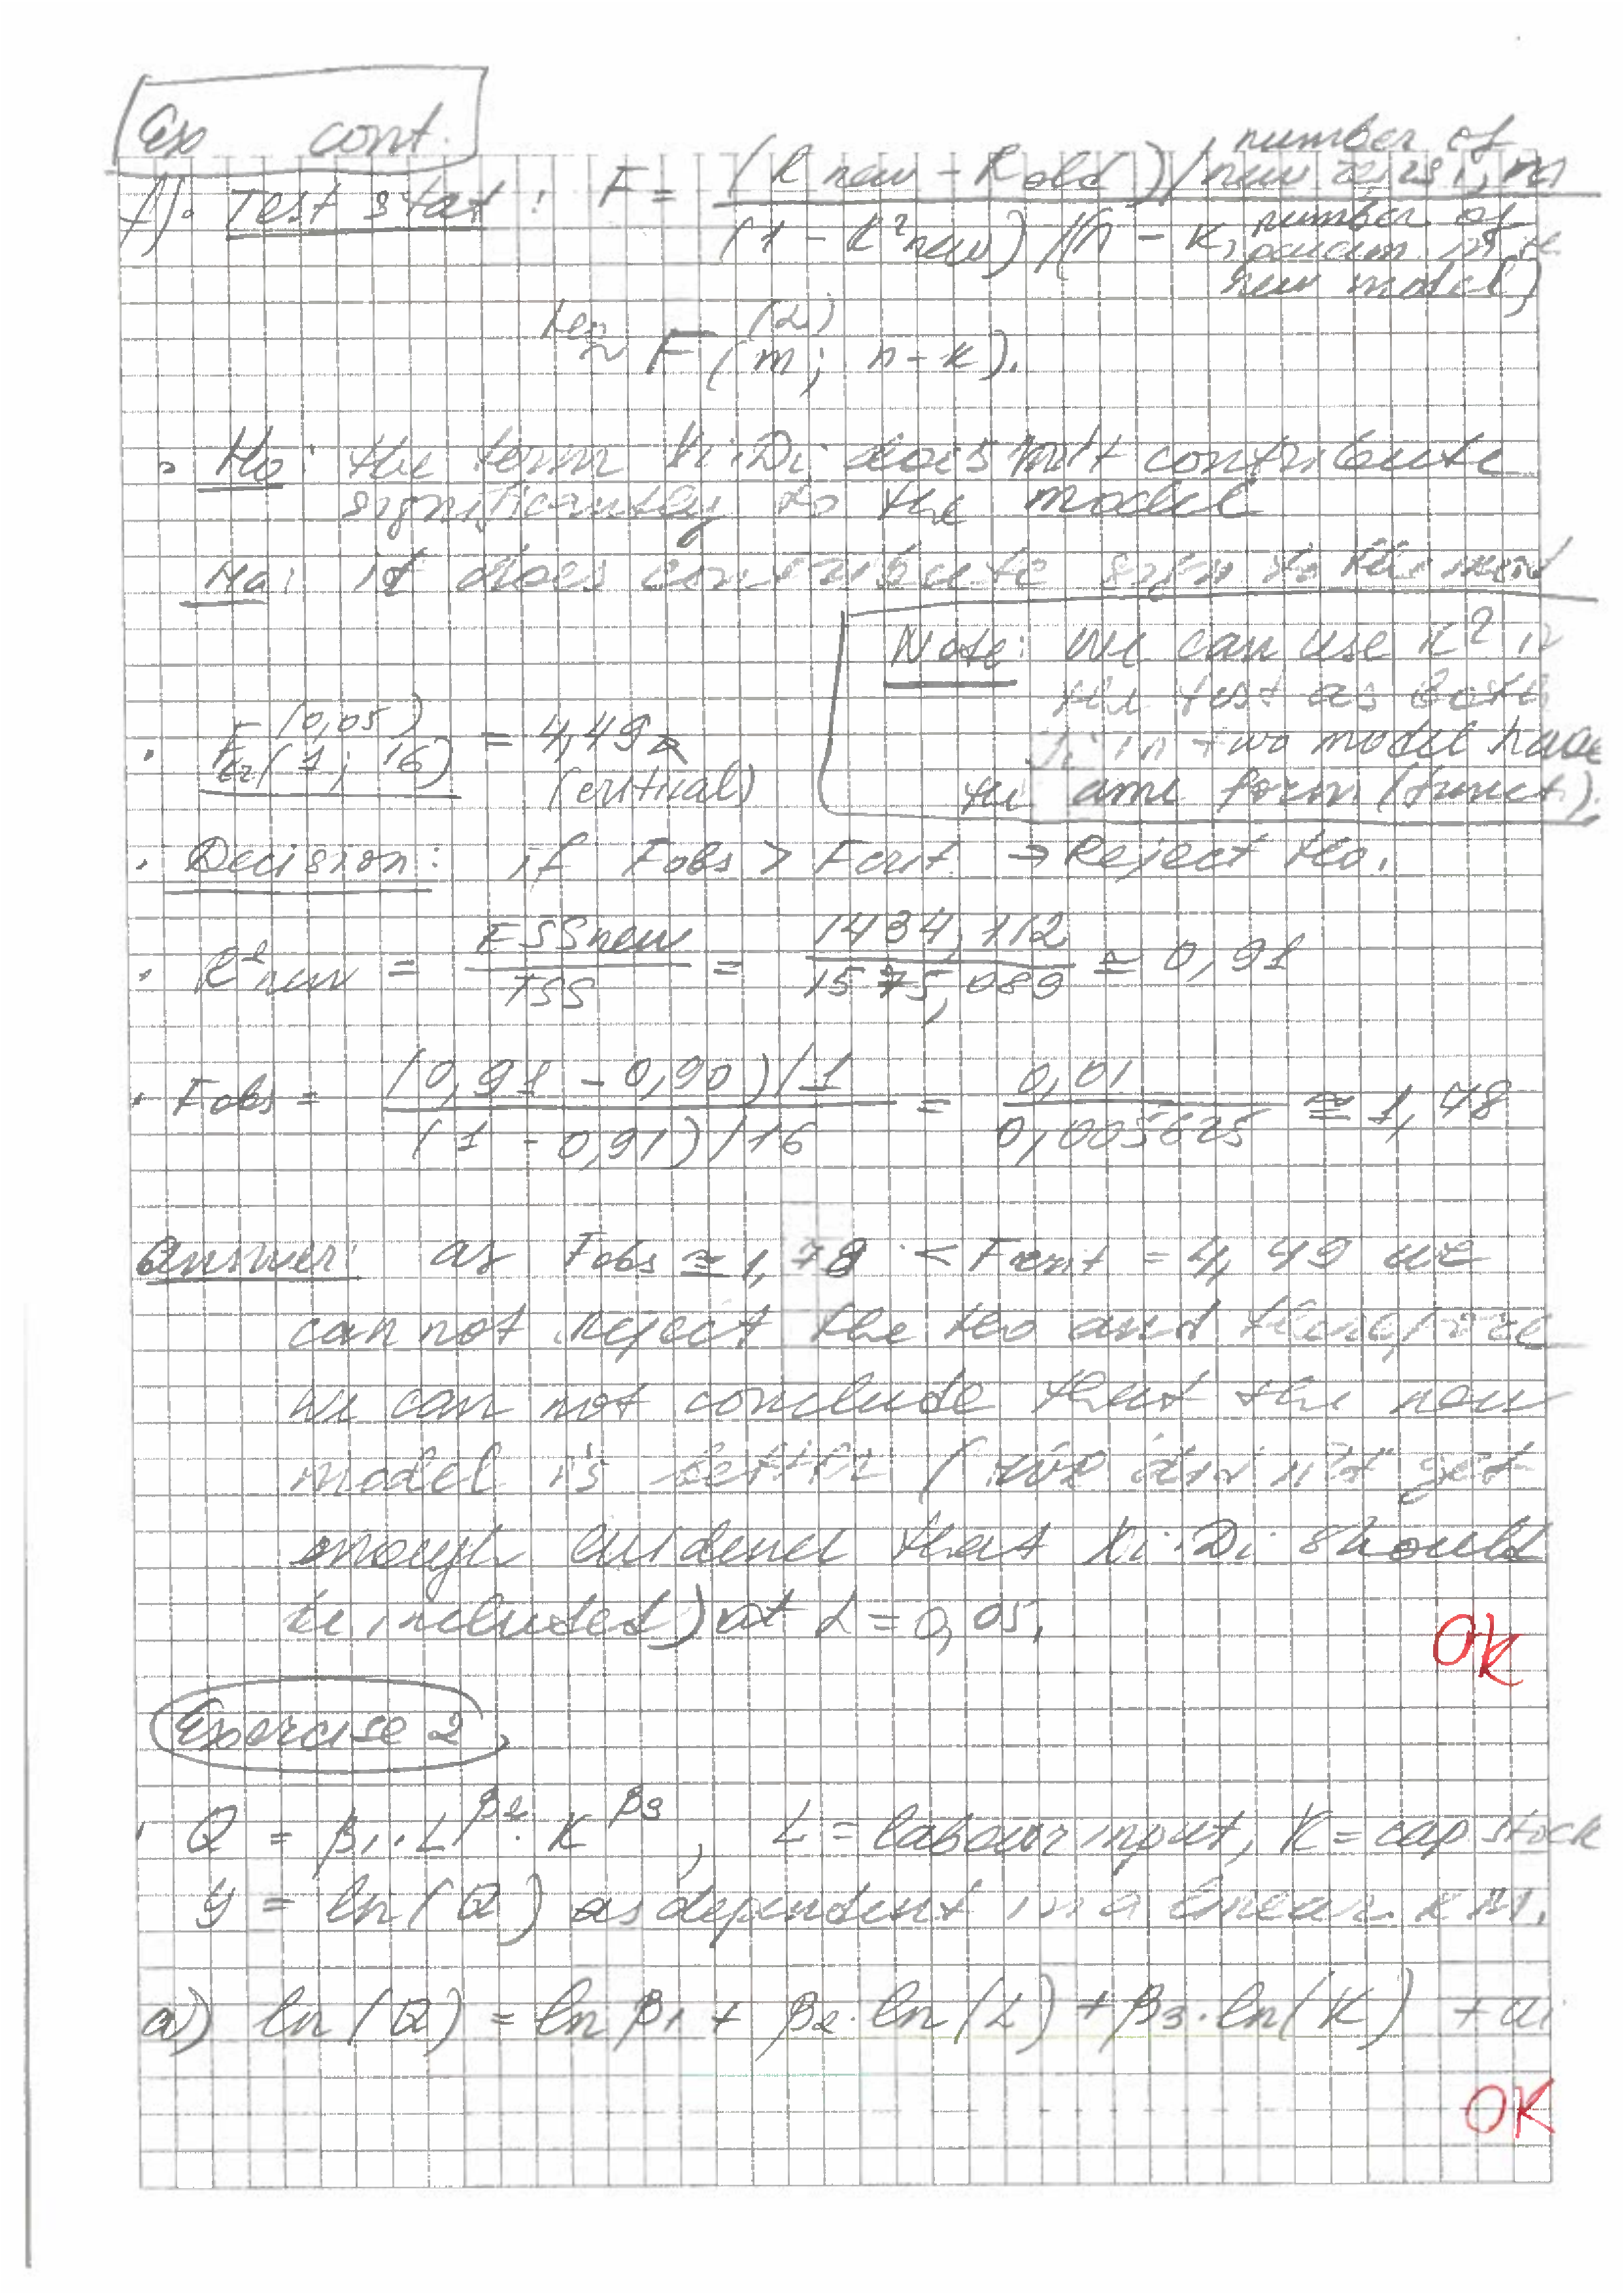 Ex cont.
f). Test stat: F = (R new - R old)/number of new regr., m
(1 - R² new)/(n - k, number of param. in the new model)
Ho ~ F (α) (m; n-k).
Ho: the term Xi·Di does n't contribute
significantly to the model
Ha: it does contribute sign to the mod
Note: we can use R² in
the test as both
in two model have
the ame form (funct).
F cr (0,05) (1; 16) = 4,49
(critical)
Decision: if Fobs > Fcrit. → Reject Ho.
R² new = ESS new / TSS = 1434,112 / 1575,089 ≅ 0,91
Fobs = (0,91 - 0,90)/1 / (1 - 0,91)/16 = 0,01 / 0,005625 ≅ 1,78
Answer: as Fobs ≅ 1,78 < Fcrit = 4,49 we
can not reject the Ho and therefore
we can not conclude that the new
model is better (we did n't get
enough evidence that Xi·Di should
be included) at α = 0,05.
OK
Exercise 2.
Q = β1·L^β2·K^β3, L = labour input, K = cap stock
y = ln(Q) as dependent in a linear RM.
a) ln(Q) = ln β1 + β2·ln(L) + β3·ln(K) + ui
OK